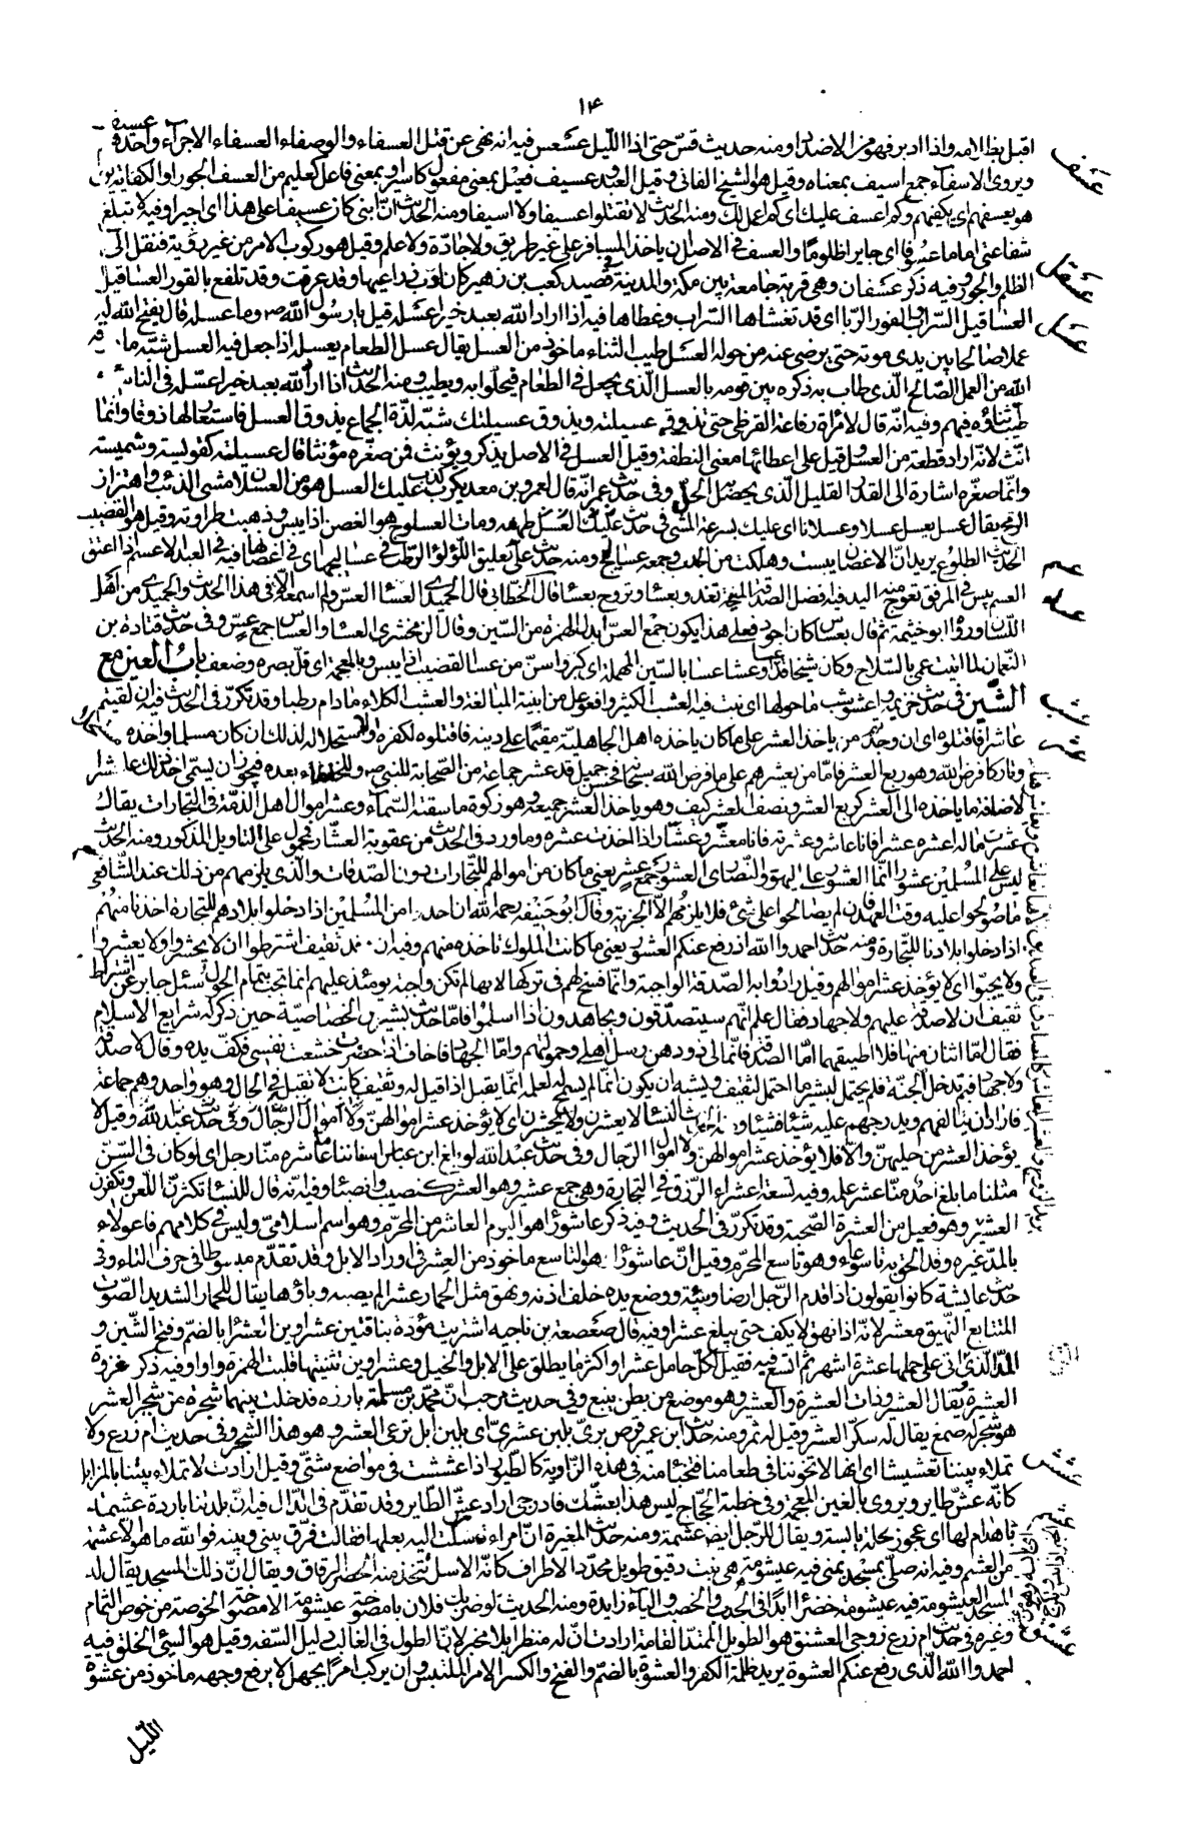 ١٤
اقبل بظلامه واذا ادبر فهو من الاضداد ومنه حديث قسّ حتى اذا الليل عسعس فيه انه نهى عن قتل العسفاء والوصفاء العسفاء الاجراء واحدهم عسيف
عسف
ويروى الاسفاء جمع اسيف بمعناه وقيل هو الشيخ الفانى وقيل العبد وعسيف فعيل بمعنى مفعول كاسير او بمعنى فاعل كعليم من العسف الجور او الكفاية يقال
هو يعسفهم اى يكفيهم وكم اعسف عليك اى كم اعمل لك ومنه الحديث لا تقتلوا عسيفا ولا اسيفا ومنه الحديث انّ ابنى كان عسيفا على هذا اى اجيرا وفيه لا تبلغ
شفاعتى اماما عسوفا اى جايرا ظلوما والعسف فى الاصل ان ياخذ المسافر على غير طريق ولا جادّة ولا علم وقيل هو ركوب الامر من غير رويّة فنقل الى
الظلم والجور وفيه ذكر عسفان وهى قرية جامعة بين مكة والمدينة فى قصيد كعب بن زهير كان اوب ذراعيها وقد عرقت وقد تلفع بالقور العساقيل
عسقل
العساقيل السراب والقور الربا اى قد تغشاها السراب وغطاها فيه اذا اراد الله بعبد خيرا عسله قيل يا رسول الله ص وما عسله قال يفتح الله له
عسل
عملا صالحا بين يدى موته حتى يرضى عنه من حوله العسل طيب الثناء ماخوذ من العسل يقال عسل الطعام يعسله اذا جعل فيه العسل شبّه ما
الله من العمل الصالح الذى طاب به ذكره بين قومه بالعسل الذى يجعل فى الطعام فيحلولى به ويطيب ومنه الحديث اذا اراد الله بعبد خيرا عسّله فى الناس
طيب ثناؤه فيهم وفيه انه قال لامراة رفاعة القرظى حتى تذوقى عسيلته ويذوق عسيلتك شبّه لذّة الجماع بذوق العسل فاستعار لها ذوقا وانما
انّث لانه اراد قطعة من العسل وقيل على اعطائها معنى النطفة وقيل العسل فى الاصل يذكر ويؤنث فمن صغّره مؤنثا قال عسيلة كقويسة وشميسة
وانما صغّره اشارة الى القدر القليل الذى يحصل به الحلّ وفى حديث عمر انه قال لعمرو بن معديكرب كذب عليك العسل هو من العسلان مشى الذئب واهتزاز
الرمح يقال عسل يعسل عسلا وعسلانا اى عليك بسرعة المشى فى حديث
الحديث الطلوع يريد انّ الاغصان يبست وهلكت من الجدب وجمعه عساليج ومنه حديث علىّ تعليق اللؤلؤ الرطب فى عساليجها اى فى اغصانها فيه فى العبد الاعسم اذا اعتق
عسم
العسم يبس فى المرفق تعوج منه اليد فيه افضل الصدقة المنيحة تغدو بعساء وتروح بعساء قال الخطابى قال الحميدى العساء العسّ ولم اسمعه الا فى هذا الحديث والحميدى من اهل
عسا
اللسان ورواه ابو خيثمة ثم قال بعساس كان اجود فعلى هذا يكون جمع العسّ ابدل الهمزة من السين وقال الزمخشرى العساء والعساس جمع عسّ وفى حديث قتادة بن
النعمان لما اتيت عمى بالسلاح وكان شيخا قد عسا او عشا عسا بالسين المهملة اى كبر واسنّ من عسا القضيب اذا يبس وبالمعجمة اى قلّ بصره وضعف باب العين مع
الشين فى حديث خزيمة واعشوشب ما حولها اى نبت فيه العشب الكثير وافعوعل من ابنية المبالغة والعشب الكلاء مادام رطبا وقد تكرّر فى الحديث فيه ان لقيتم
عشب
عاشرا فاقتلوه اى ان وجدتم من ياخذ العشر على ما كان ياخذه اهل الجاهلية مقيما على دينه فاقتلوه لكفره ولاستحلاله لذلك ان كان مسلما واخذه
عشر
وتاركا فرض الله وهو ربع العشر فامّا من يعشرهم على ما فرض الله سبحانه فحسن جميل قد عشر جماعة من الصحابة للنبى ص وللخلفاء بعده فيجوز ان يسمّى اخذ ذلك عاشرا
لاضافة ما ياخذه الى العشر كربع العشر ونصف العشر كيف وهو ياخذ العشر جميعه وهو زكوة ما سقته السماء وعشر اموال اهل الذمّة فى التجارات يقال
عشرت ماله اعشره عشرا فانا عاشر وعشّرته فانا معشّر وعشّار اذا اخذت عشره وما ورد فى الحديث من عقوبة العشّار فمحمول على التاويل المذكور ومنه الحديث
ليس على المسلمين عشور انما العشور على اليهود والنصارى العشور جمع عشر يعنى ما كان من اموالهم للتجارات دون الصدقات والذى يلزمهم من ذلك عند الشافعى
ما صولحوا عليه وقت العهد فان لم يصالحوا على شئ فلا يلزمهم الا الجزية وقال ابو حنيفة رحمه الله ان اخذوا من المسلمين اذا دخلوا بلادهم للتجارة اخذنا منهم
اذا دخلوا بلادنا للتجارة ومنه حديث احمدوا الله اذ رفع عنكم العشور يعنى ما كانت الملوك تاخذه منهم وفيه ان وفد ثقيف اشترطوا ان لا يحشروا ولا يعشروا
ولا يجبّوا اى لا يؤخذ عشر اموالهم وقيل ارادوا به الصدقة الواجبة وانما فسح لهم فى تركها لانها لم تكن واجبة يومئذ عليهم انما تجب بتمام الحول سئل جابر عن اشتراط
ثقيف ان لا صدقة عليهم ولا جهاد فقال علم انهم سيتصدّقون ويجاهدون اذا اسلموا فامّا حديث بشير بن الخصاصيّة حين ذكر له شرايع الاسلام
فقال امّا اثنان منها فلا اطيقهما امّا الصدقة فانّما لى ذود هن رسل اهلى وحمولتهم وامّا الجهاد فاخاف اذا حضرت خشعت نفسى فكفّ يده وقال لا صدقة
ولا جهاد فبم تدخل الجنّة فلم يحتمل لبشير ما احتمل لثقيف ويشبه ان يكون انما لم يسمح له لعلمه انما يقبل اذا قيل له وثقيف كانت لا تقبل فى الحال وهو واحد وهم جماعة
فاراد ان يتالفهم ويدرجهم عليه شيئا فشيئا ومنه الحديث النساء لا يعشرن ولا يحشرن اى لا يؤخذ عشر اموالهن ولا اموال الرجال وفى حديث عبد الله وقيل لا
يؤخذ العشر من حليهنّ والا فلا يؤخذ عشر اموالهن ولا اموال الرجال وفى حديث عبد الله لو بلغ ابن عباس اسناننا ما عاشره منّا رجل اى لو كان فى السنّ
مثلنا ما بلغ احد منّا عشر علمه وفيه تسعة اعشراء الرزق فى التجارة وهى جمع عشير وهو العشر كنصيب وانصباء وفيه انه قال للنساء تكثرن اللعن وتكفرن
العشير وهو فعيل من العشرة الصحبة وقد تكرّر فى الحديث وفيه ذكر عاشوراء هو اليوم العاشر من المحرّم وهو اسم اسلامىّ وليس فى كلامهم فاعولاء
بالمدّ غيره وقد الحق به تاسوعاء وهو تاسع المحرّم وقيل انّ عاشوراء هو التاسع ماخوذ من العشر فى اوراد الابل وقد تقدّم مبسوطا فى حرف التاء وفى
حديث عايشة كانوا يقولون اذا قدم الرجل ارضا وبيئة ووضع يده خلف اذنه ونهق مثل الحمار عشرا لم يصبه وباؤها يقال للحمار الشديد الصوت
المتتابع النهيق معشّر لانّه اذا نهق لا يكفّ حتى يبلغ عشرا وفيه قال صعصعة بن ناجيه اشتريت موؤدة بناقتين عشراوين العشراء بالضمّ وفتح الشين و
المدّ التى اتى على حملها عشرة اشهر ثم اتسع فيه فقيل لكلّ حامل عشراء واكثر ما يطلق على الابل والخيل وعشراوين تثنيتها قلبت الهمزة واوا وفيه ذكر غزوة
العشيرة ويقال العشير وذات العشيرة والعشير وهو موضع من بطن ينبع وفى حديث مرحب انّ محمّد بن مسلمة بارزه فدخلت بينهما شجرة من شجر العشر
هو شجر له صمغ يقال له سكّر العشر وقيل له ثمر ومنه حديث ابن عمير قرص برّىّ بلبن عشرىّ اى بلبن ابل ترعى العشر وهو هذا الشجر وفى حديث ام زرع ولا
عشش
تملاء بيتنا تعشيشا اى انها لا تخوننا فى طعامنا فتخبئ منه فى هذه الزاوية كالطيور اذا عششت فى مواضع شتّى وقيل ارادت لا تملاء بيتنا بالمزابل
كانّه عشّ طاير ويروى بالغين المعجمة وفى خطبة الحجّاج ليس هذا بعشّك فادرجى اراد عشّ الطاير وقد تقدّم فى الدال فيه انّ بلدتنا باردة عشمة
عشم
فاهدام لها اى عجوز بحلة يابسة ويقال للرجل ايضا عشمة ومنه حديث المغيرة انّ امراة شكت اليه بعلها فقالت فرّق بينى وبينه فوالله ما هو الا عشمة
من العشم وفيه انه صلّى بمسجد بمنى فيه عيشومة هى نبت دقيق طويل محدّد الاطراف كانّه الاسل تتّخذ منه الحصر الرقاق ويقال انّ ذلك المسجد يقال له
المسجد العيشومة فيه عيشومة خضراء ابدا فى الجدب والخصب والياء زايدة ومنه الحديث لو ضربك فلان بامصوخة عيشومة الامصوخة الخوصة من خوص الثمام
وغيره فى حديث ام زرع زوجى العشنق هو الطويل الممتدّ القامة ارادت انّ له منظرا بلا مخبر لانّ الطول فى الغالب دليل السفه وقيل هو السيئ الخلق فيه
عشنق
احمدوا الله الذى رفع عنكم العشوة يريد ظلمة الكفر والعشوة بالضمّ والفتح والكسر الامر الملتبس وان يركب امرا بجهل لا يعرف وجهه ماخوذ من عشوة
الليل